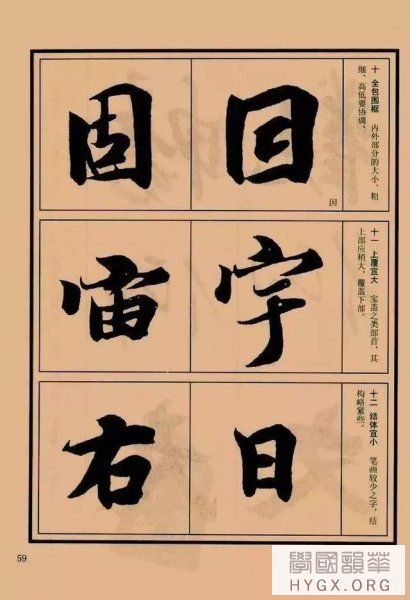 十 全包围框 内外部分的大小、粗
细、高低要协调。
囙
因
固
十一 上覆宜大 宝盖之类部首，其
上部应稍大，覆盖下部。
字
宙
十二 结体宜小 笔画较少之字，结
构略紧些。
日
右
59
學國韻華
HYGX.ORG